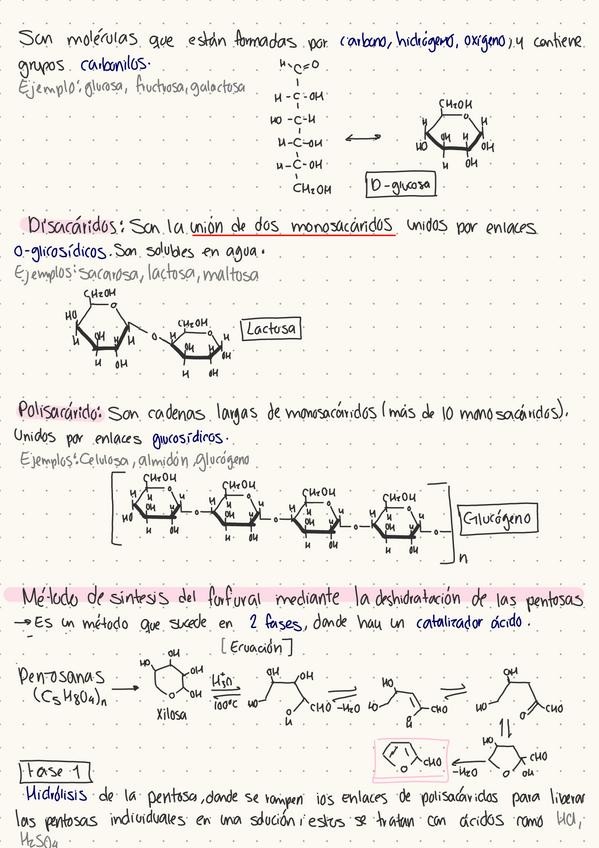 Son moléculas que están formadas por carbono, hidrógeno, oxígeno, y contiene
grupos carbonilos.
Ejemplo: glucosa, fructosa, galactosa
H C=O
H-C-OH
HO-C-H
H-C-OH
H-C-OH
CH2OH
CH2OH
H O H
HO OH H OH
H OH
D-glucosa
Disacáridos: Son la unión de dos monosacáridos unidos por enlaces
O-glicosídicos. Son solubles en agua.
Ejemplos: sacarosa, lactosa, maltosa
CH2OH
HO O
H OH H
H OH
O
CH2OH
H O H
OH H OH
H OH
Lactosa
Polisacárido: Son cadenas largas de monosacáridos (más de 10 monosacáridos).
Unidos por enlaces glucosídicos.
Ejemplos: Celulosa, almidón, glucógeno
CH2OH CH2OH CH2OH CH2OH
HO O O O O
H OH H OH H OH H OH
n
Glucógeno
Método de sintesis del forfural mediante la deshidratación de las pentosas
→ Es un método que sucede en 2 fases, donde hay un catalizador ácido.
[Ecuación]
Pentosanas
(C5H8O4)n
HO OH OH OH O
Xilosa
H3O
100°C
OH OH HO O H CHO
-H2O
HO HO O H CHO
OH HO O CHO
HO O OH CHO
-H2O
O CHO
Fase 1
Hidrólisis de la pentosa, donde se rompen los enlaces de polisacáridos para liberar
las pentosas individuales en una solución; estos se tratan con ácidos como HCl,
H2SO4